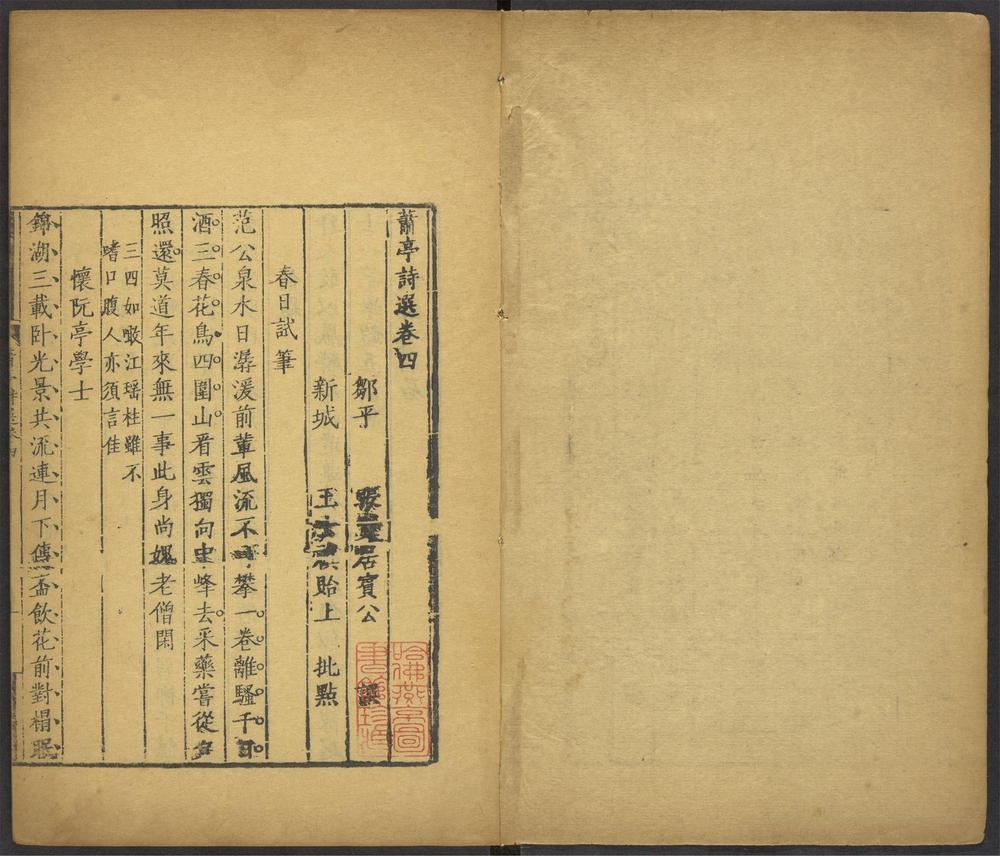 蕭亭詩選卷四
鄒平 張 居賓公 譔
新城 王 貽上 批點
春日試筆
范公泉水日潺湲前輩風流不可攀一卷離騷千日
酒三春花鳥四圍山看雲獨向 峰去采藥嘗從
照還莫道年來無一事此身尚媿老僧閑
三四如噉江瑤柱雖不
嗜口腹人亦須言佳
懷阮亭學士
錦湖三載卧光景共流連月下傳盃飲花前對榻眠
哈佛燕京圖
書館珍藏